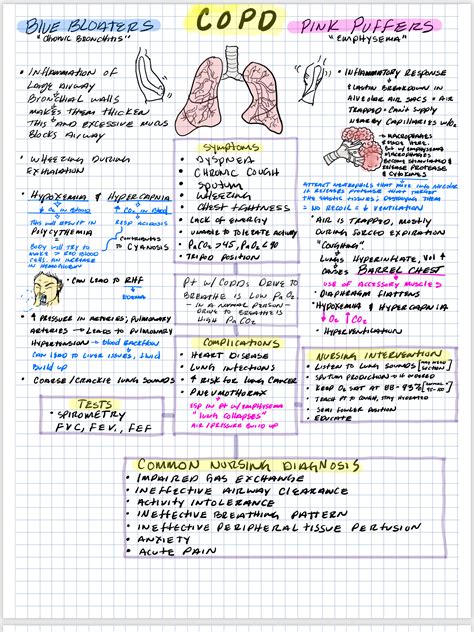 COPD
BLUE BLOATERS
"CHRONIC BRONCHITIS"
• INFLAMMATION OF
LARGE AIRWAY
BRONCHIAL WALLS
MAKES THEM THICKEN
THIS AND EXCESSIVE MUCUS
BLOCKS AIRWAY
• WHEEZING DURING
EXHALATION
• HYPOXEMIA & HYPERCAPNIA
↓ O₂ IN BLOOD
↑ CO₂ IN BLOOD
THIS WILL RESULT IN
POLYCYTHEMIA
RESP ACIDOSIS
BODY WILL TRY TO
MAKE ↑ RED BLOOD
CELLS, AN INCREASE
IN HEMOGLOBIN
CONTRIBUTES
TO CYANOSIS
• CAN LEAD TO RHF
EDEMA
• ↑ PRESSURE IN ARTERIES; PULMONARY
ARTERIES → LEADS TO PULMONARY
HYPERTENSION → BLOOD BACKFLOW
CAN LEAD TO LIVER ISSUES, FLUID
BUILD UP
• COARSE/CRACKLE LUNG SOUNDS
TESTS
• SPIROMETRY
FVC, FEV₁, FEF
SYMPTOMS
• DYSPNEA
• CHRONIC COUGH
• SPUTUM
• WHEEZING
• CHEST TIGHTNESS
• LACK OF ENERGY
• UNABLE TO TOLERATE ACTIVITY
• PaCO₂ >45, PaO₂ <90
• TRIPOD POSITION
PT W/ COPD: DRIVE TO
BREATHE IS LOW PaO₂.
IN A NORMAL PERSON -
DRIVE TO BREATHE IS
HIGH PaCO₂
COMPLICATIONS
• HEART DISEASE
• LUNG INFECTIONS
• ↑ RISK FOR LUNG CANCER
• PNEUMOTHORAX
ESP IN PT W/ EMPHYSEMA
"LUNG COLLAPSES"
AIR/PRESSURE BUILD UP
PINK PUFFERS
"EMPHYSEMA"
• INFLAMMATORY RESPONSE
ELASTIN BREAKDOWN IN
ALVEOLAR AIR SACS = AIR
TRAPPED = CAN'T SUPPLY
NEARBY CAPILLARIES W/O₂
MACROPHAGES
• AIR IS TRAPPED, MOSTLY
DURING FORCED EXPIRATION
"COUGHING"
LUNGS HYPERINFLATE, VOL ↑
CAUSES BARREL CHEST
USE OF ACCESSORY MUSCLES
• DIAPHRAGM FLATTENS
• HYPOXEMIA & HYPERCAPNIA
↓ O₂ ↑ CO₂
HYPERVENTILATION
NURSING INTERVENTION
• LISTEN TO LUNG SOUNDS
• SPUTUM PRODUCTION → IF ORDERED
• KEEP O₂ SAT @ 88-93%
• TEACH PT ↓ COUGH, STAY HYDRATED
• SEMI FOWLER POSITION
• EDUCATE
COMMON NURSING DIAGNOSIS
• IMPAIRED GAS EXCHANGE
• INEFFECTIVE AIRWAY CLEARANCE
• ACTIVITY INTOLERANCE
• INEFFECTIVE BREATHING PATTERN
• INEFFECTIVE PERIPHERAL TISSUE PERFUSION
• ANXIETY
• ACUTE PAIN